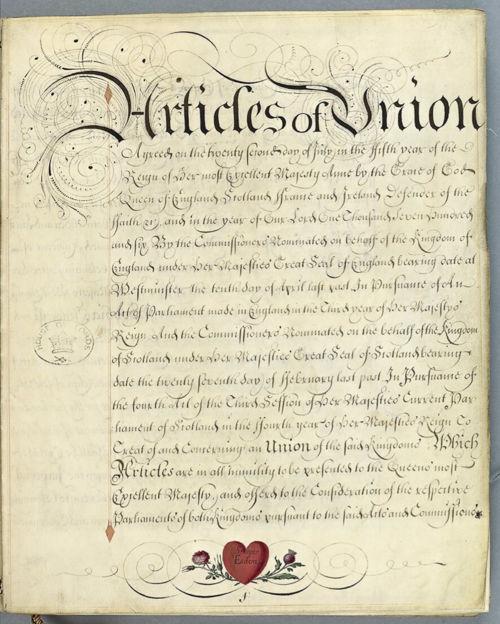 Articles of Union
Agreed on the twenty second day of July in the fifth year of the
Reign of Her most Excellent Majesty Anne by the Grace of God
Queen of England Scotland ffrance and Ireland Defender of the
ffaith &c, and in the year of Our Lord One Thousand Seven Hundred
and six, By the Commissioners Nominated on behalf of the Kingdom of
England under Her Majesties Great Seal of England bearing date at
Westminster the tenth day of April last past In Pursuance of An
Act of Parliament made in England in the Third year of Her Majestys
Reign And the Commissioners Nominated on the behalf of the Kingdom
of Scotland under Her Majesties Great Seal of Scotland bearing
date the twenty seventh day of ffebruary last past In Pursuance of
the fourth Act of the Third Session of Her Majesties Current Par-
liament of Scotland in the ffourth year of Her Majesties Reign To
Treat of and Concerning an Union of the said Kingdoms Which
Articles are in all humility to be presented to the Queens most
Excellent Majesty, and offered to the Consideration of the respective
Parliaments of both Kingdoms pursuant to the said Acts and Commissions
HOUSE OF LORDS